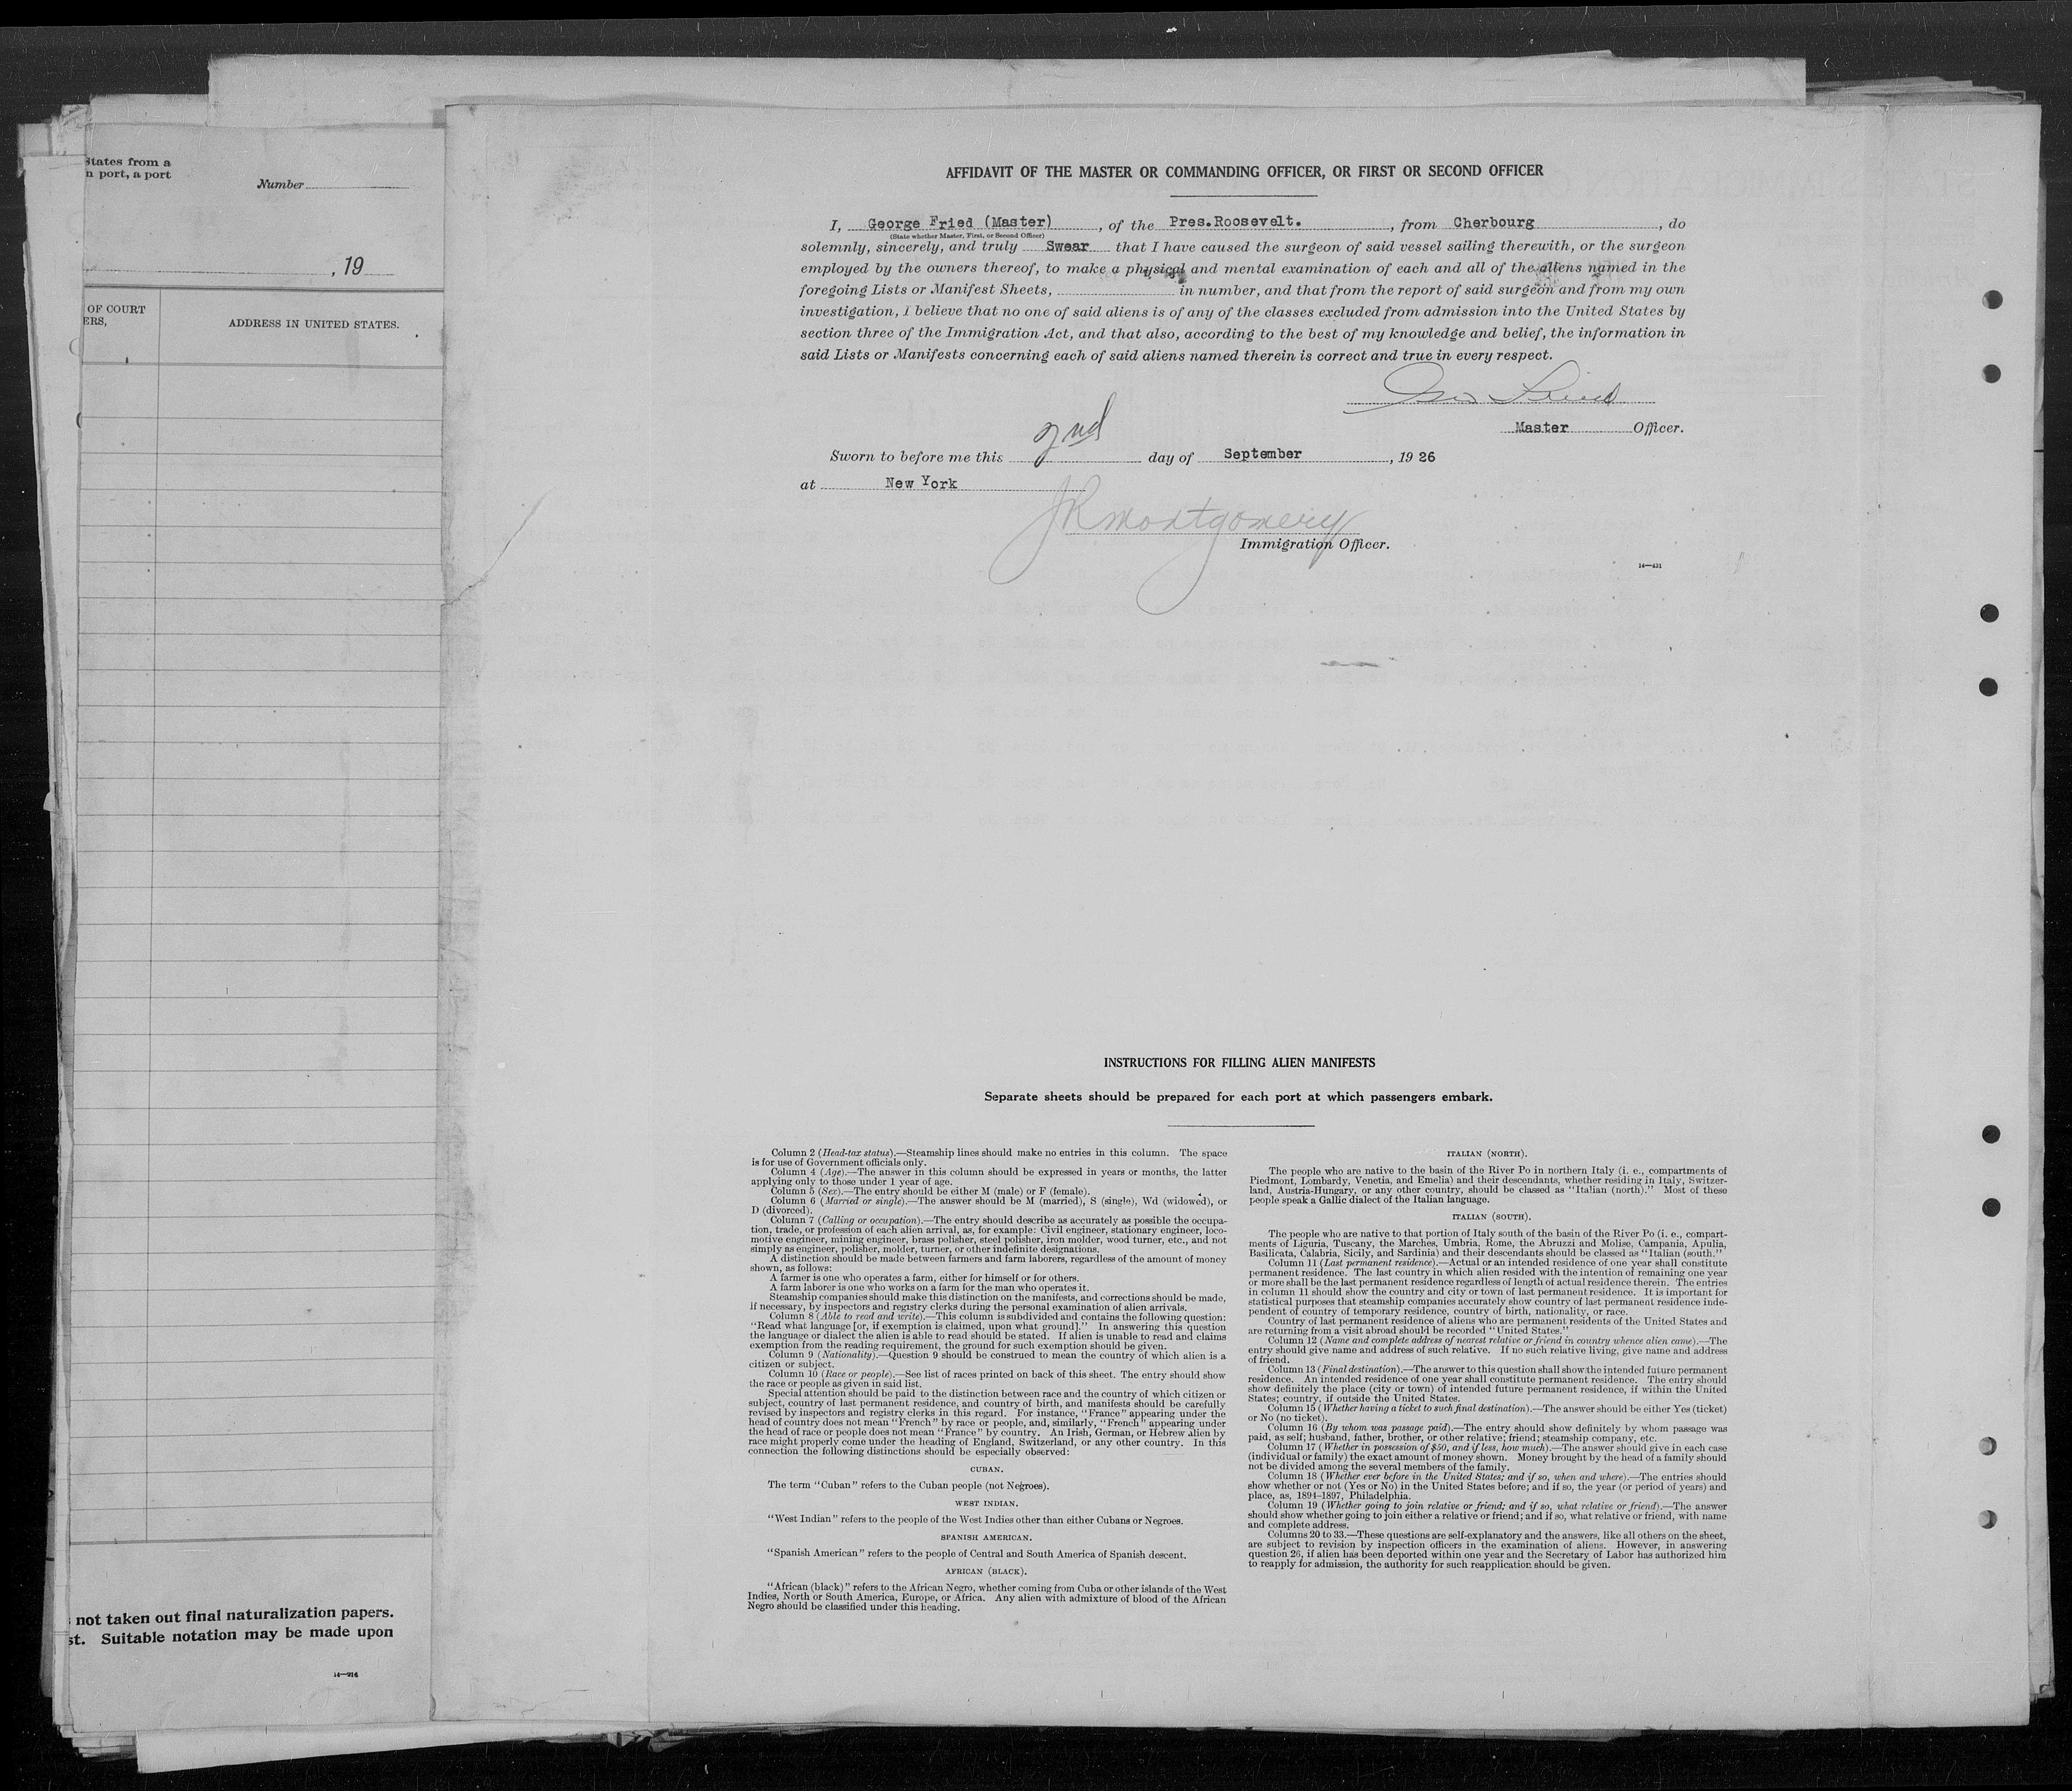 States from a
n port, a port
Number
, 19
OF COURT
ERS,
ADDRESS IN UNITED STATES.
not taken out final naturalization papers.
st. Suitable notation may be made upon
14—914
AFFIDAVIT OF THE MASTER OR COMMANDING OFFICER, OR FIRST OR SECOND OFFICER
I, George Fried (Master), of the Pres.Roosevelt., from Cherbourg, do
(State whether Master, First, or Second Officer)
solemnly, sincerely, and truly Swear that I have caused the surgeon of said vessel sailing therewith, or the surgeon
employed by the owners thereof, to make a physical and mental examination of each and all of the aliens named in the
foregoing Lists or Manifest Sheets, in number, and that from the report of said surgeon and from my own
investigation, I believe that no one of said aliens is of any of the classes excluded from admission into the United States by
section three of the Immigration Act, and that also, according to the best of my knowledge and belief, the information in
said Lists or Manifests concerning each of said aliens named therein is correct and true in every respect.
Geo Fried
Master Officer.
Sworn to before me this 2nd day of September, 19 26
at New York
JR Montgomery
Immigration Officer.
14—431
INSTRUCTIONS FOR FILLING ALIEN MANIFESTS
Separate sheets should be prepared for each port at which passengers embark.
Column 2 (Head-tax status).—Steamship lines should make no entries in this column. The space
is for use of Government officials only.
Column 4 (Age).—The answer in this column should be expressed in years or months, the latter
applying only to those under 1 year of age.
Column 5 (Sex).—The entry should be either M (male) or F (female).
Column 6 (Married or single).—The answer should be M (married), S (single), Wd (widowed), or
D (divorced).
Column 7 (Calling or occupation).—The entry should describe as accurately as possible the occupa-
tion, trade, or profession of each alien arrival, as, for example: Civil engineer, stationary engineer, loco-
motive engineer, mining engineer, brass polisher, steel polisher, iron molder, wood turner, etc., and not
simply as engineer, polisher, molder, turner, or other indefinite designations.
A distinction should be made between farmers and farm laborers, regardless of the amount of money
shown, as follows:
A farmer is one who operates a farm, either for himself or for others.
A farm laborer is one who works on a farm for the man who operates it.
Steamship companies should make this distinction on the manifests, and corrections should be made,
if necessary, by inspectors and registry clerks during the personal examination of alien arrivals.
Column 8 (Able to read and write).—This column is subdivided and contains the following question:
"Read what language [or, if exemption is claimed, upon what ground]." In answering this question
the language or dialect the alien is able to read should be stated. If alien is unable to read and claims
exemption from the reading requirement, the ground for such exemption should be given.
Column 9 (Nationality).—Question 9 should be construed to mean the country of which alien is a
citizen or subject.
Column 10 (Race or people).—See list of races printed on back of this sheet. The entry should show
the race or people as given in said list.
Special attention should be paid to the distinction between race and the country of which citizen or
subject, country of last permanent residence, and country of birth, and manifests should be carefully
revised by inspectors and registry clerks in this regard. For instance, "France" appearing under the
head of country does not mean "French" by race or people, and, similarly, "French" appearing under
the head of race or people does not mean "France" by country. An Irish, German, or Hebrew alien by
race might properly come under the heading of England, Switzerland, or any other country. In this
connection the following distinctions should be especially observed:
CUBAN.
The term "Cuban" refers to the Cuban people (not Negroes).
WEST INDIAN.
"West Indian" refers to the people of the West Indies other than either Cubans or Negroes.
SPANISH AMERICAN.
"Spanish American" refers to the people of Central and South America of Spanish descent.
AFRICAN (BLACK).
"African (black)" refers to the African Negro, whether coming from Cuba or other islands of the West
Indies, North or South America, Europe, or Africa. Any alien with admixture of blood of the African
Negro should be classified under this heading.
ITALIAN (NORTH).
The people who are native to the basin of the River Po in northern Italy (i. e., compartments of
Piedmont, Lombardy, Venetia, and Emelia) and their descendants, whether residing in Italy, Switzer-
land, Austria-Hungary, or any other country, should be classed as "Italian (north)." Most of these
people speak a Gallic dialect of the Italian language.
ITALIAN (SOUTH).
The people who are native to that portion of Italy south of the basin of the River Po (i. e., compart-
ments of Liguria, Tuscany, the Marches, Umbria, Rome, the Abruzzi and Molise, Campania, Apulia,
Basilicata, Calabria, Sicily, and Sardinia) and their descendants should be classed as "Italian (south."
Column 11 (Last permanent residence).—Actual or an intended residence of one year shall constitute
permanent residence. The last country in which alien resided with the intention of remaining one year
or more shall be the last permanent residence regardless of length of actual residence therein. The entries
in column 11 should show the country and city or town of last permanent residence. It is important for
statistical purposes that steamship companies accurately show country of last permanent residence inde-
pendent of country of temporary residence, country of birth, nationality, or race.
Country of last permanent residence of aliens who are permanent residents of the United States and
are returning from a visit abroad should be recorded "United States."
Column 12 (Name and complete address of nearest relative or friend in country whence alien came).—The
entry should give name and address of such relative. If no such relative living, give name and address
of friend.
Column 13 (Final destination).—The answer to this question shall show the intended future permanent
residence. An intended residence of one year shall constitute permanent residence. The entry should
show definitely the place (city or town) of intended future permanent residence, if within the United
States; country, if outside the United States.
Column 15 (Whether having a ticket to such final destination).—The answer should be either Yes (ticket)
or No (no ticket).
Column 16 (By whom was passage paid).—The entry should show definitely by whom passage was
paid, as self; husband, father, brother, or other relative; friend; steamship company, etc.
Column 17 (Whether in possession of $50, and if less, how much).—The answer should give in each case
(individual or family) the exact amount of money shown. Money brought by the head of a family should
not be divided among the several members of the family.
Column 18 (Whether ever before in the United States; and if so, when and where).—The entries should
show whether or not (Yes or No) in the United States before; and if so, the year (or period of years) and
place, as, 1894-1897, Philadelphia.
Column 19 (Whether going to join relative or friend; and if so, what relative or friend).—The answer
should show whether going to join either a relative or friend; and if so, what relative or friend, with name
and complete address.
Columns 20 to 33.—These questions are self-explanatory and the answers, like all others on the sheet,
are subject to revision by inspection officers in the examination of aliens. However, in answering
question 26, if alien has been deported within one year and the Secretary of Labor has authorized him
to reapply for admission, the authority for such reapplication should be given.